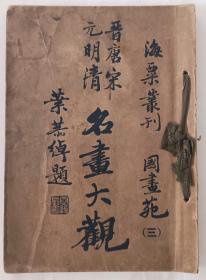 海粟叢刊 國畫苑(三)
晉唐宋
元明清
名畫大觀
葉恭綽題